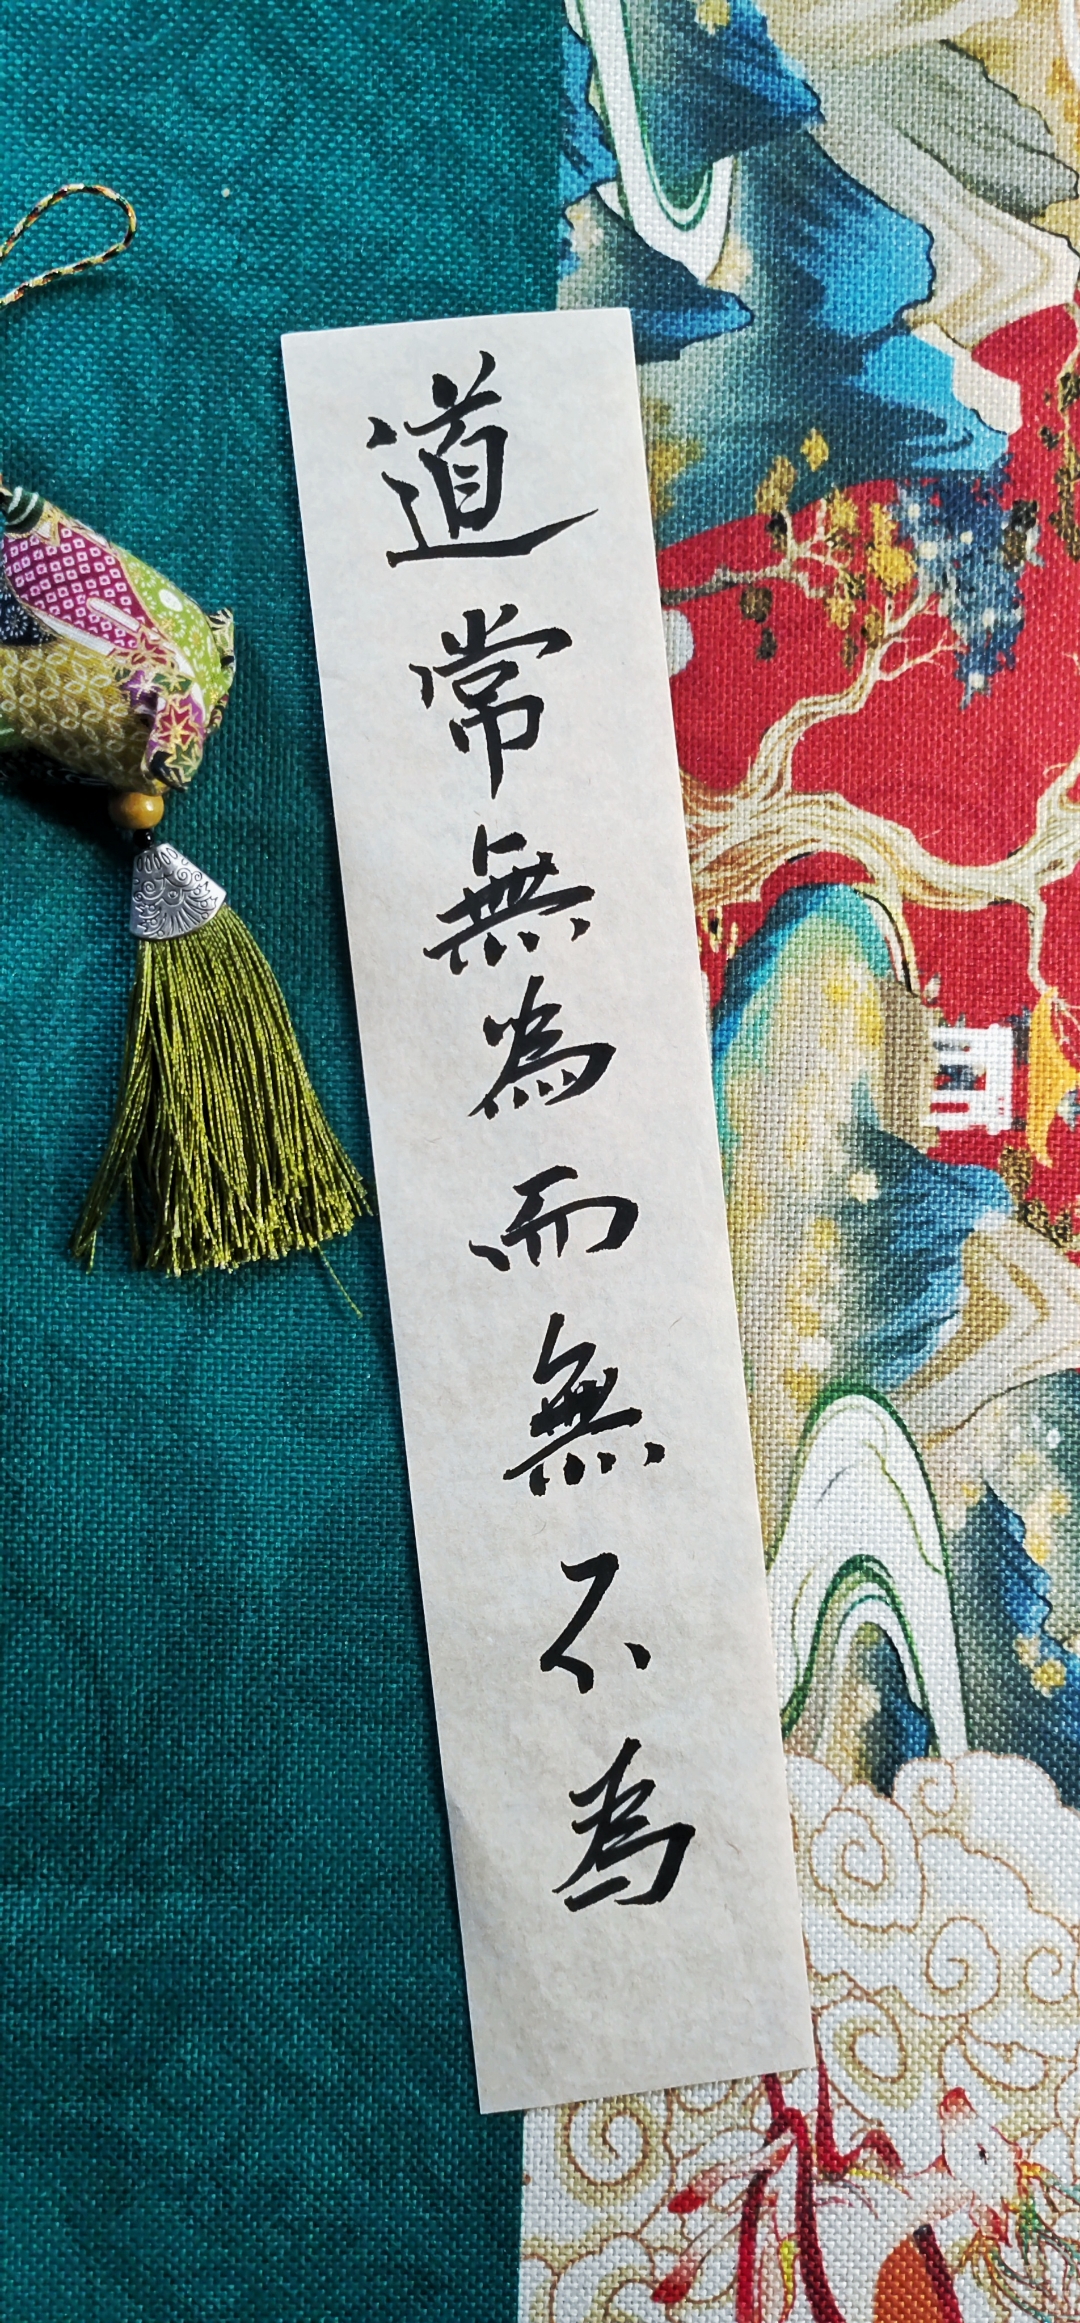 道常無為而無不為